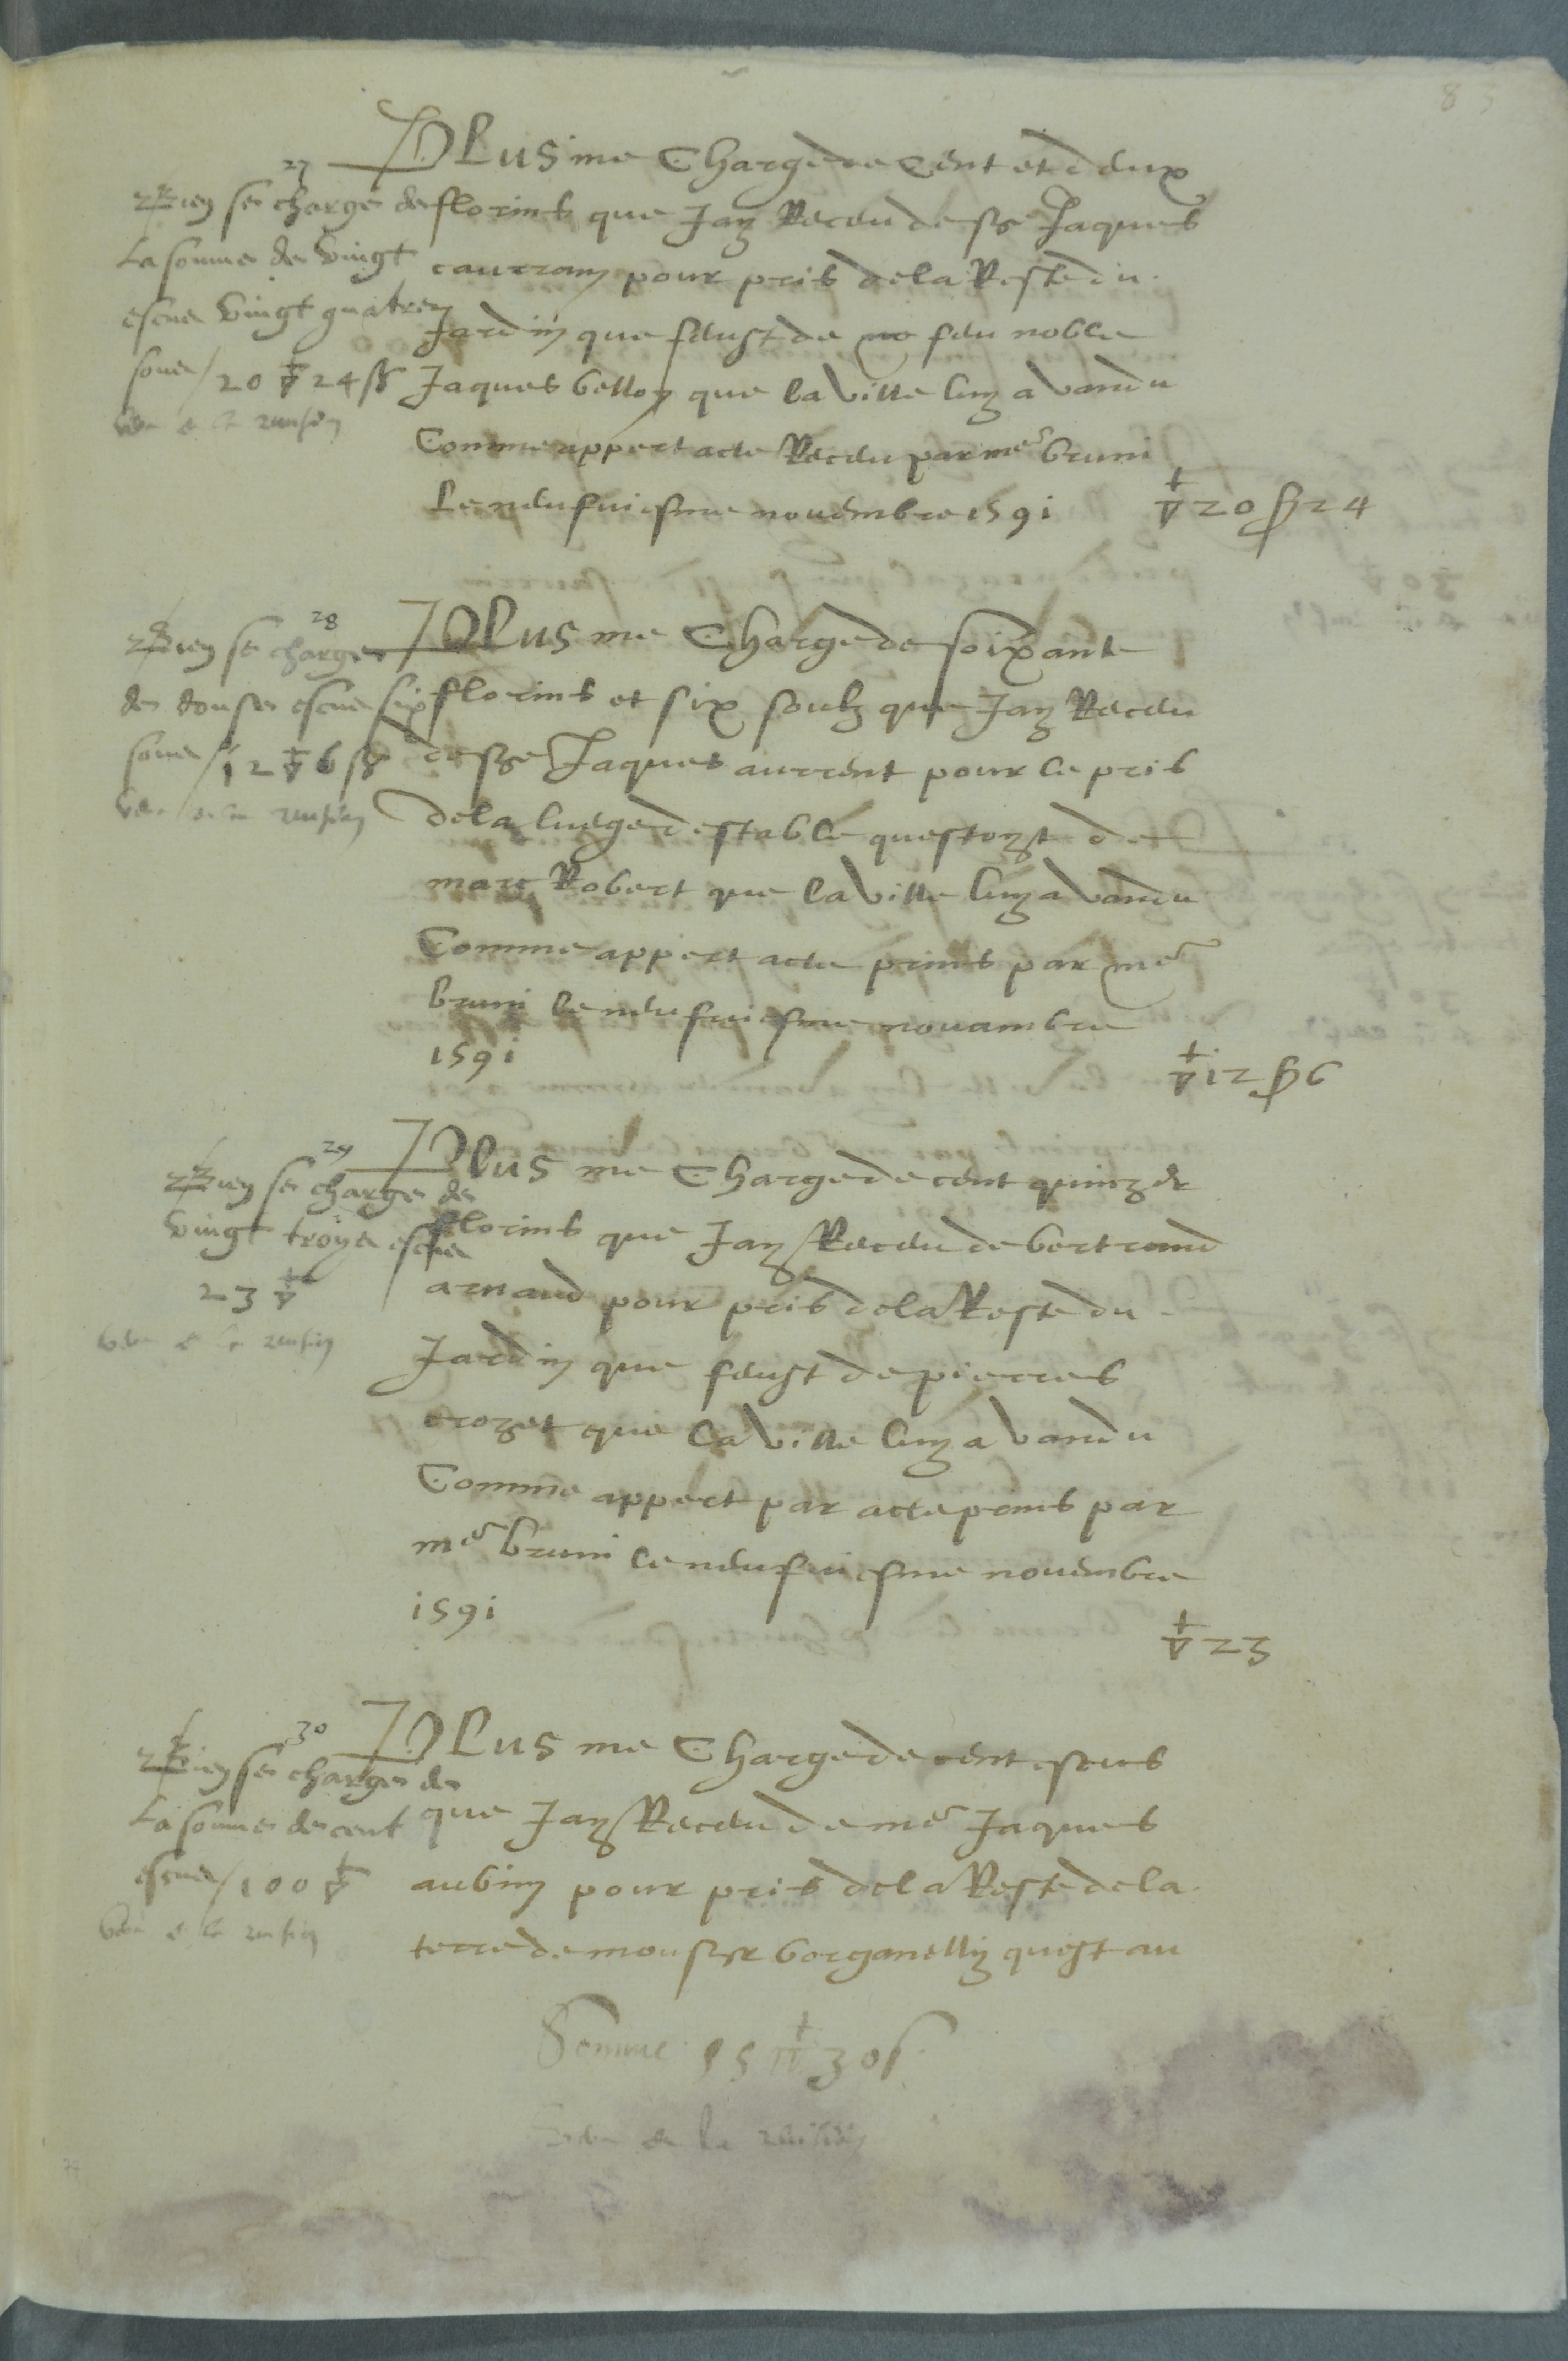 83
27
PLus me Charge de Cent et deux
florins que Jay Receu de sr Jaques
cautram pour pris de la Reste du
Jardin que feust de no feu noble
Jaques belloy que la ville luy a vandu
Comme appert acte Receu par me bruni
Le neufviesme novembre 1591
20 24
se charge de
La somme de vingt
escus vingt quatre
sous / 20 24
veu
28
PLus me Charge de soixante
florins et six soulz que Jay Receu
de sre Jaques aurent pour le pris
de la luege destable questoyt de
marc Robert que la ville luy a vandu
Comme appert acte prins par me
bruni le neufviesme novambre
1591
12 6
se charge
de douse escus six
sous / 12 6
veu
29
Plus me Charge de cent quinze
florins que Jay Receu de bertrand
arnaud pour pris de la Reste du
Jardin que feust de pierres
crozet que la ville luy a vandu
Comme appert par acte prins par
me bruni le neufviesme novembre
1591
23
se charge de
vingt troys escus
23
30
PLus me Charge de cent escus
que Jay Receu de me Jaques
aubin pour pris de la Reste de la
terre de monsr borganelly quest au
se charge de
La somme de cent
escus / 100
Somme 155 30 s